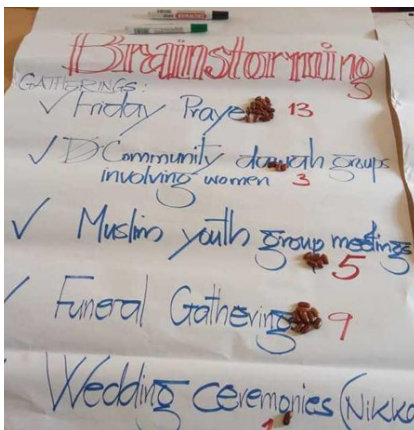 Brainstorming
GATHERINGS:
✓ Friday Praye 13
✓ Community dawah groups
involving women 3
✓ Muslim youth group meetings
5
Funeral Gathering 9
Wedding ceremonies (Nikka
1